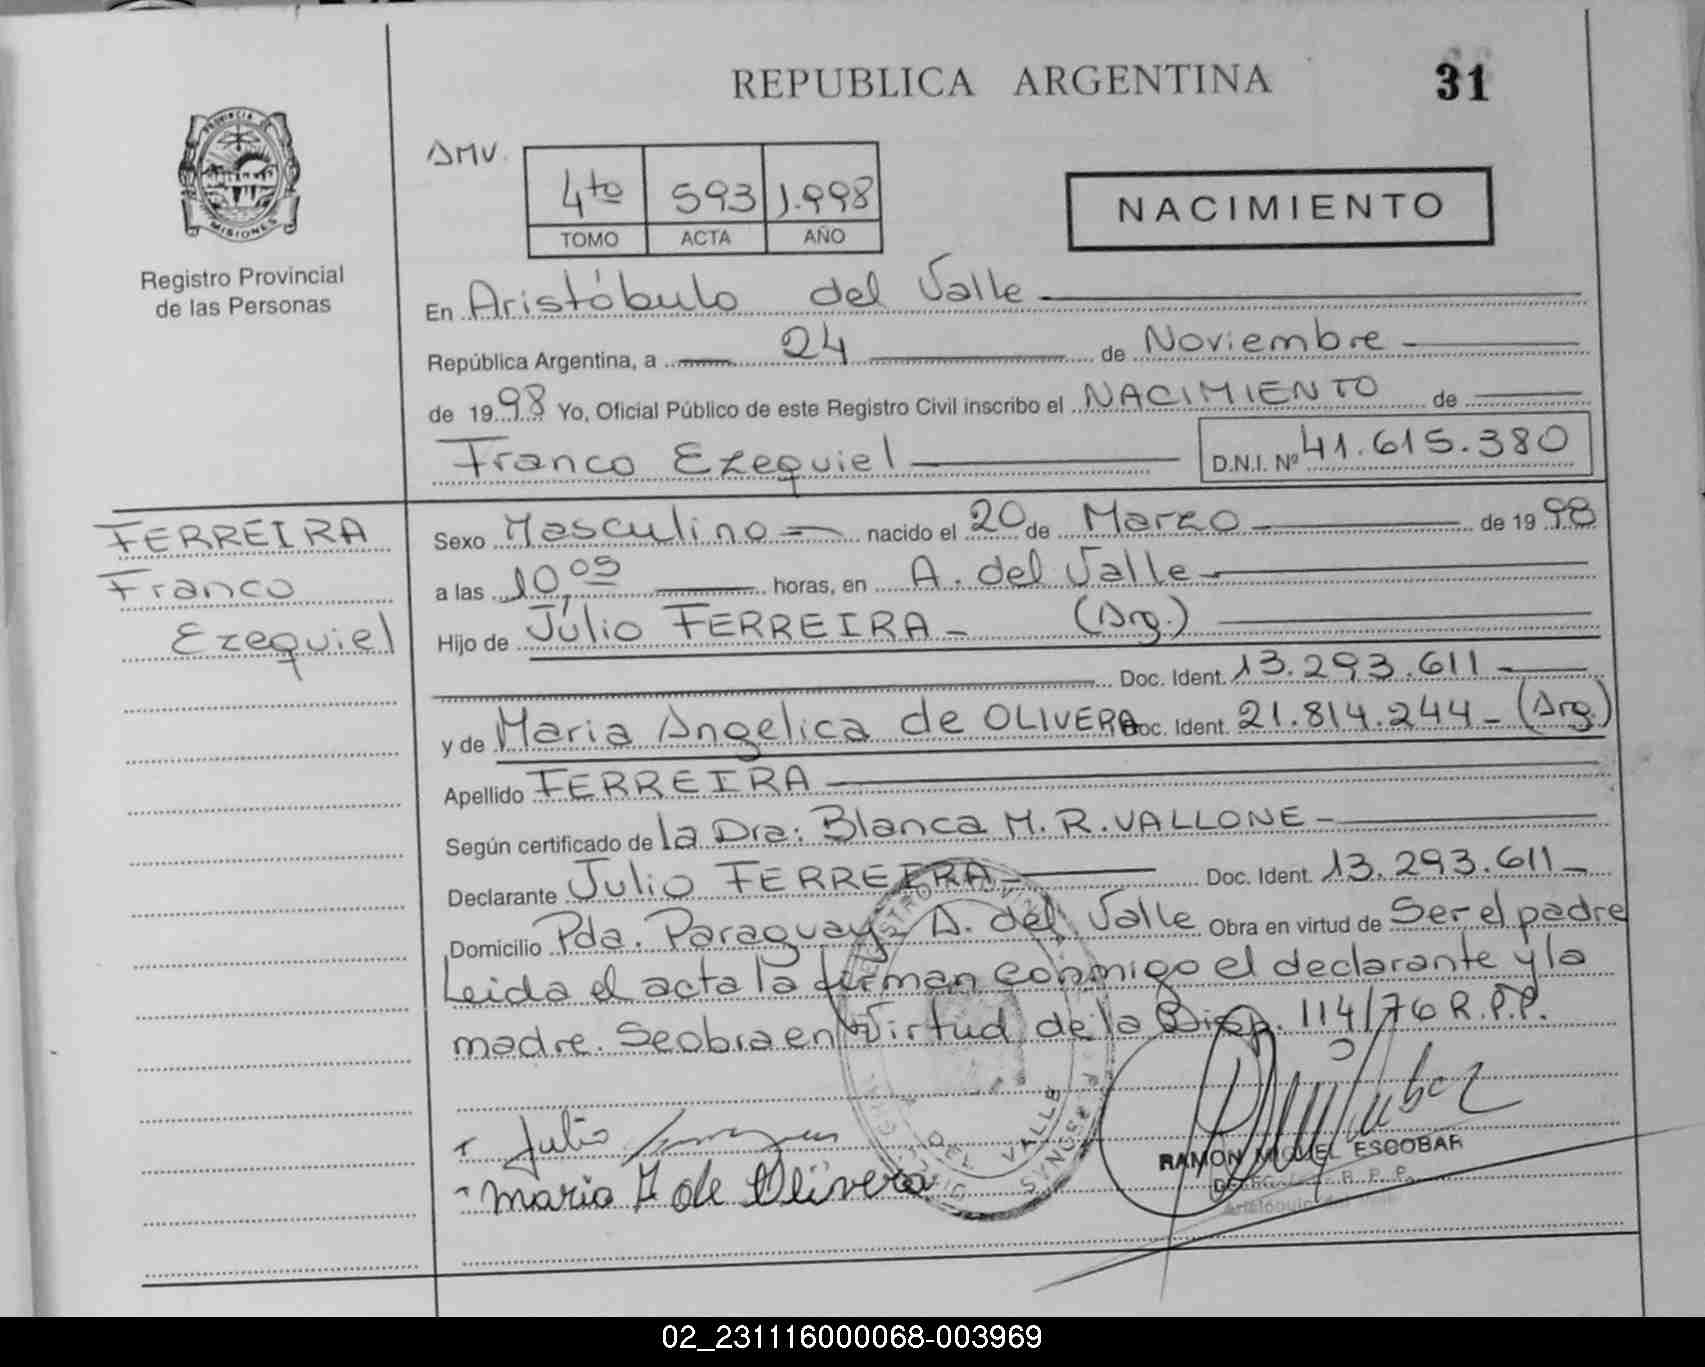 REPUBLICA ARGENTINA
31
PROVINCIA DE
MISIONES
Registro Provincial
de las Personas
AMV.
4to 593 1.998
TOMO ACTA AÑO
NACIMIENTO
En Aristóbulo del Valle
República Argentina, a 24 de Noviembre
de 1998 Yo, Oficial Público de este Registro Civil inscribo el NACIMIENTO de
Franco Ezequiel D.N.I. Nº 41.615.380
FERREIRA
Franco
Ezequiel
Sexo Masculino nacido el 20 de Marzo de 1998
a las 10,05 horas, en A. del Valle
Hijo de Julio FERREIRA (Arg.)
Doc. Ident. 13.293.611
y de Maria Angelica de OLIVERA Doc. Ident. 21.814.244 (Arg.)
Apellido FERREIRA
Según certificado de la Dra: Blanca M. R. VALLONE
Declarante Julio FERREIRA Doc. Ident. 13.293.611
Domicilio Pda. Paraguay A. del Valle Obra en virtud de Ser el padre
Leida el acta la firman conmigo el declarante y la
madre. Se obra en Virtud de la Disp. 114/76 R.P.P.
Julio
maria de Olivera
DEL VALLE
RAMON MIGUEL ESCOBAR
R. P. P.
02_231116000068-003969